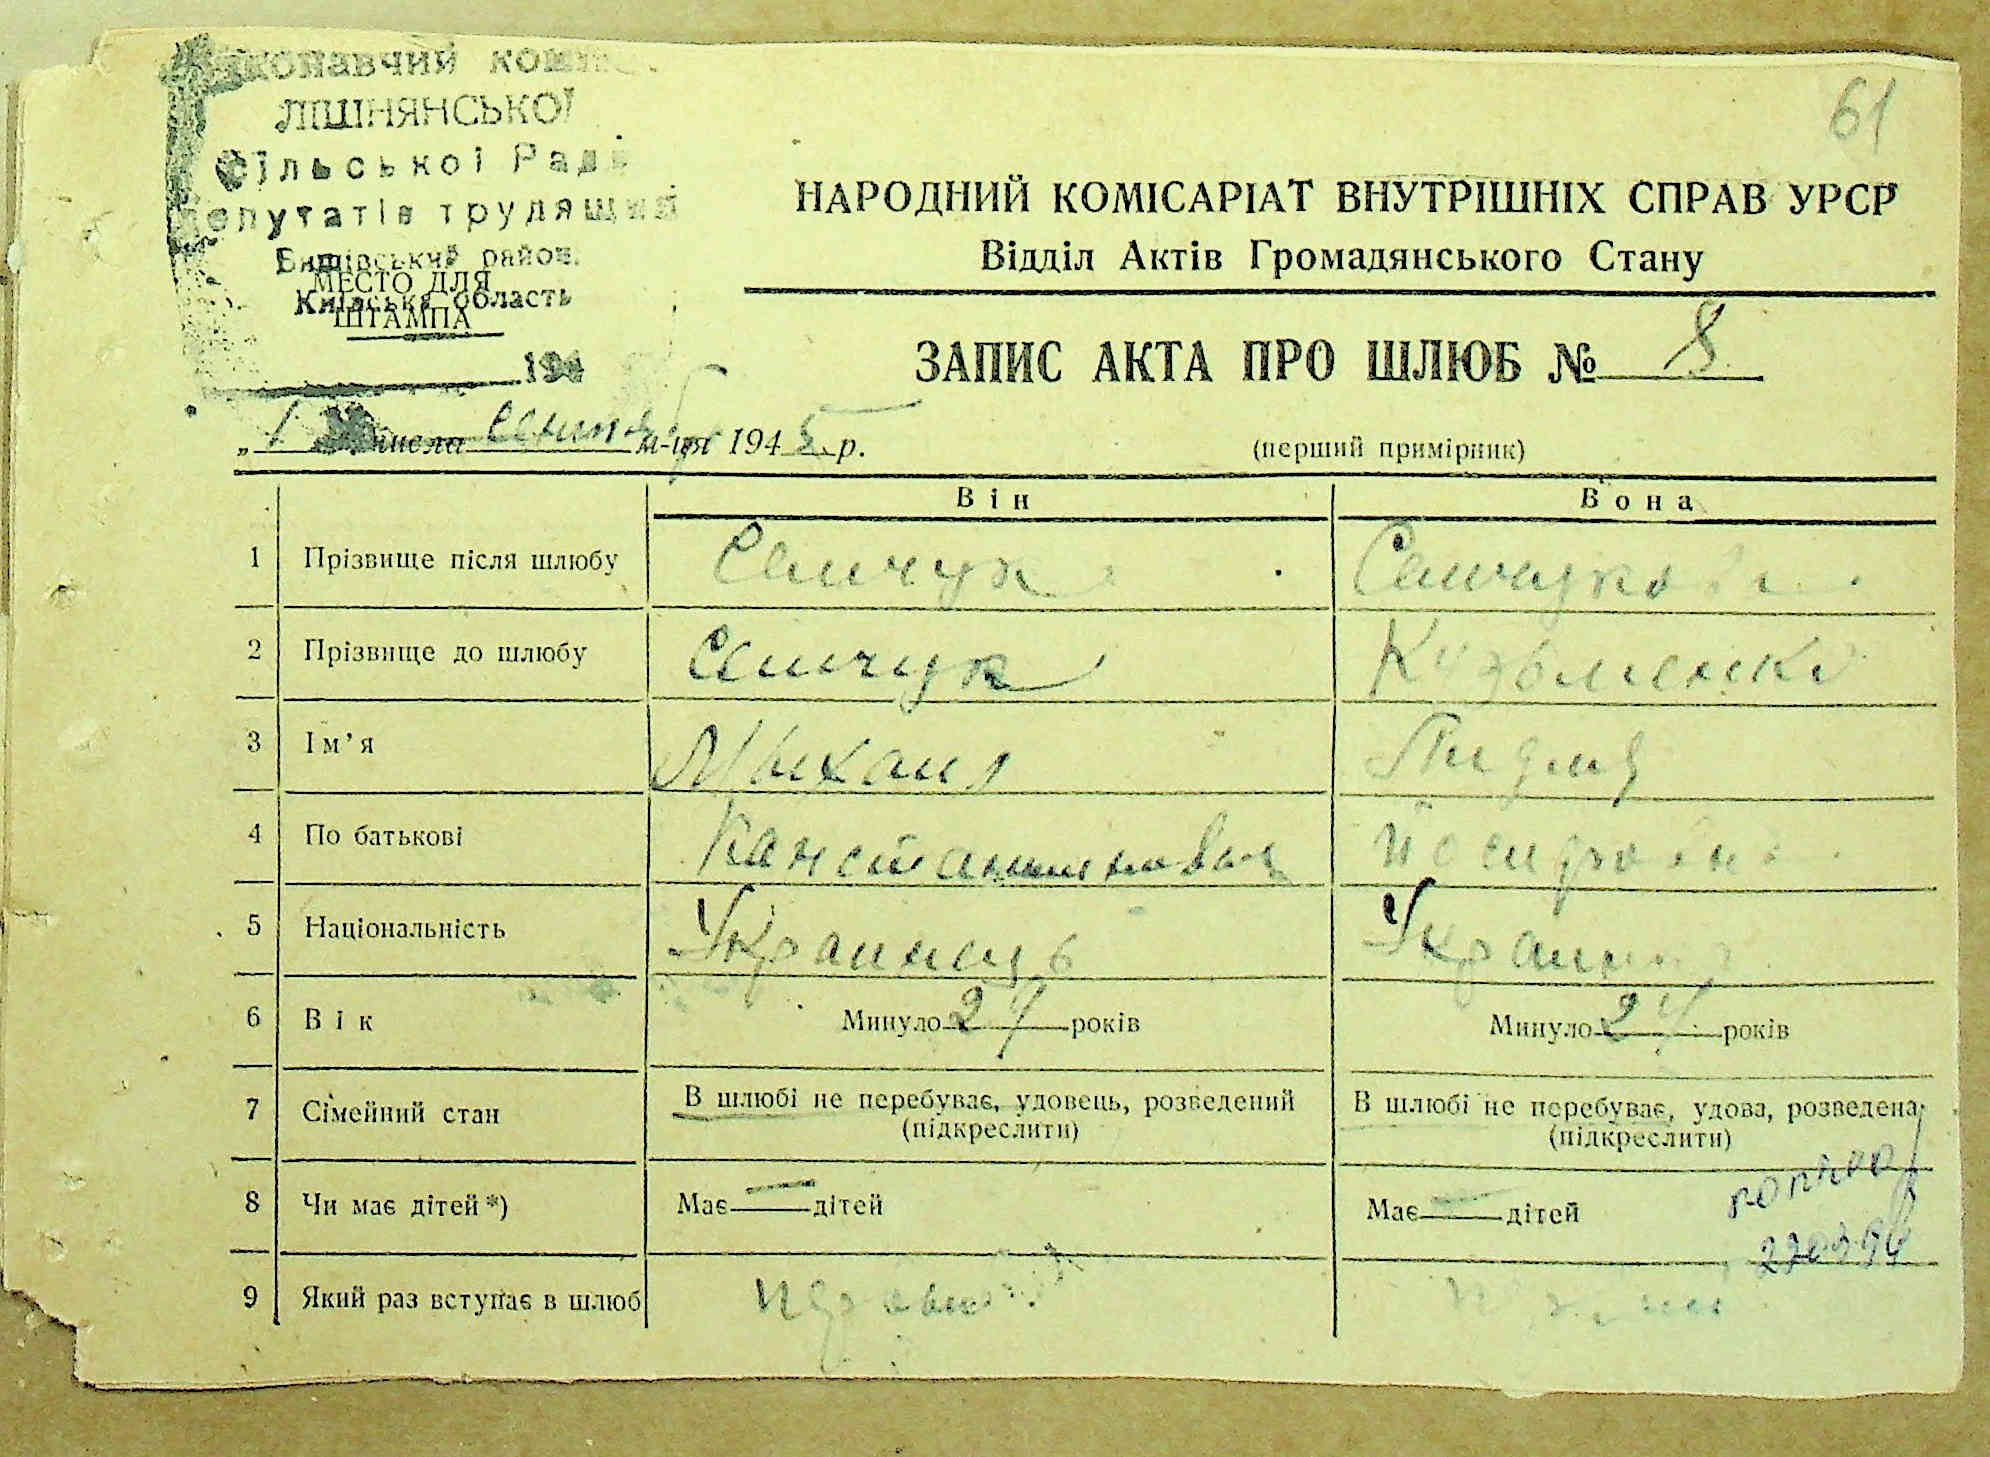 Виконавчий коміт
ЛІШНЯНСЬКОЇ
Сільської Ради
депутатів трудящих
Бишівський район,
МЕСТО ДЛЯ
Київська область
ШТАМПА
194
61
НАРОДНИЙ КОМІСАРІАТ ВНУТРІШНІХ СПРАВ УРСР
Відділ Актів Громадянського Стану
ЗАПИС АКТА ПРО ШЛЮБ № 8
„ 1 числа м-ця 1945 р.
(перший примірник)
Він Вона
1 Прізвище після шлюбу Семчук
2 Прізвище до шлюбу Семчук Кузьменко
3 Ім’я Михаил
4 По батькові Константинович
5 Національність Украинець Украинка
6 Вік Минуло 27 років Минуло 24 років
7 Сімейний стан В шлюбі не перебуває, удовець, розведений (підкреслити) В шлюбі не перебуває, удова, розведена (підкреслити)
8 Чи має дітей *) Має — дітей Має — дітей
9 Який раз вступає в шлюб